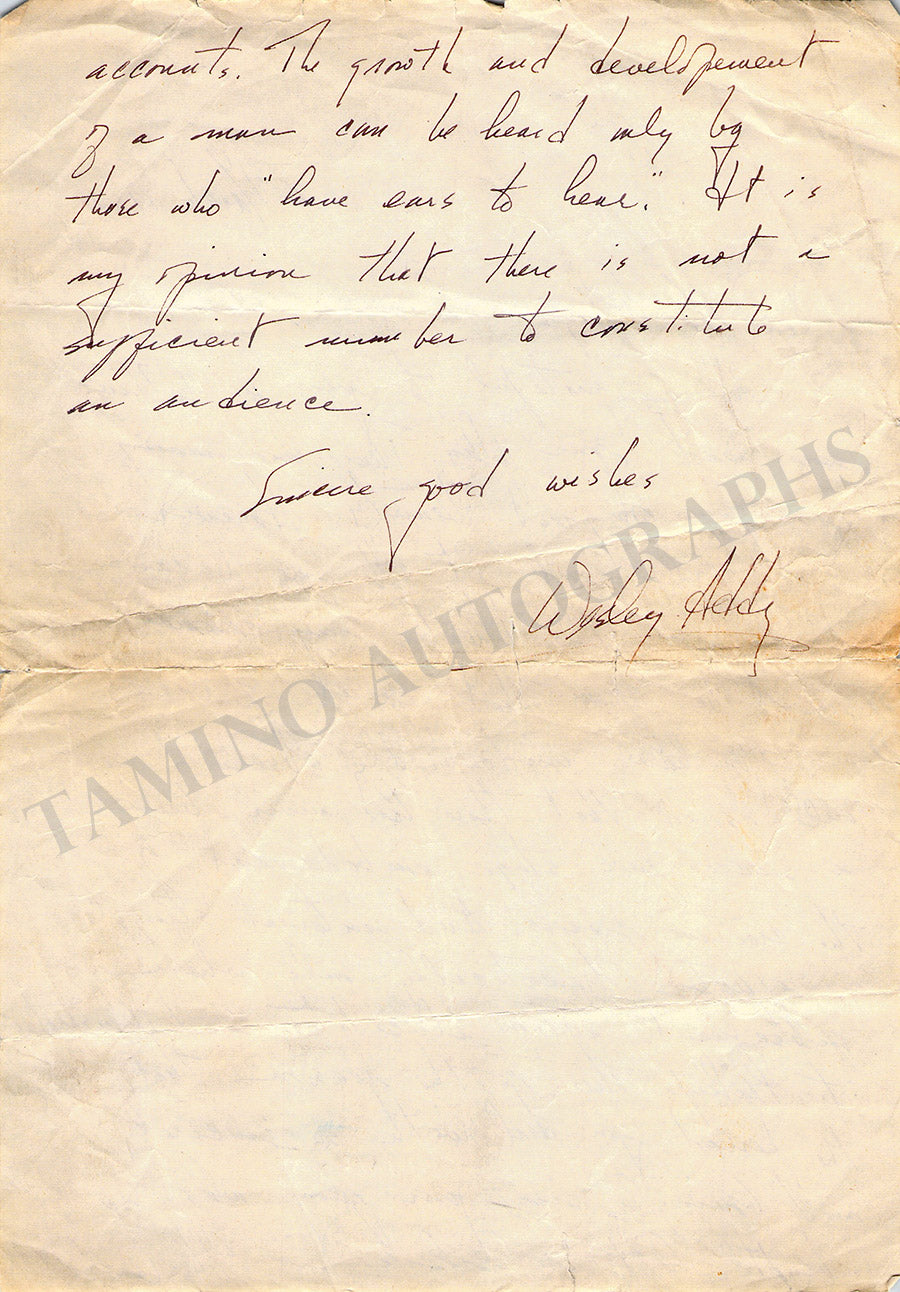 accounts. The growth and developement
of a man can be heard only by
those who "have ears to hear." It is
my opinion that there is not a
sufficient number to constitute
an audience.
Sincere good wishes
Wesley Addy
TAMINO AUTOGRAPHS